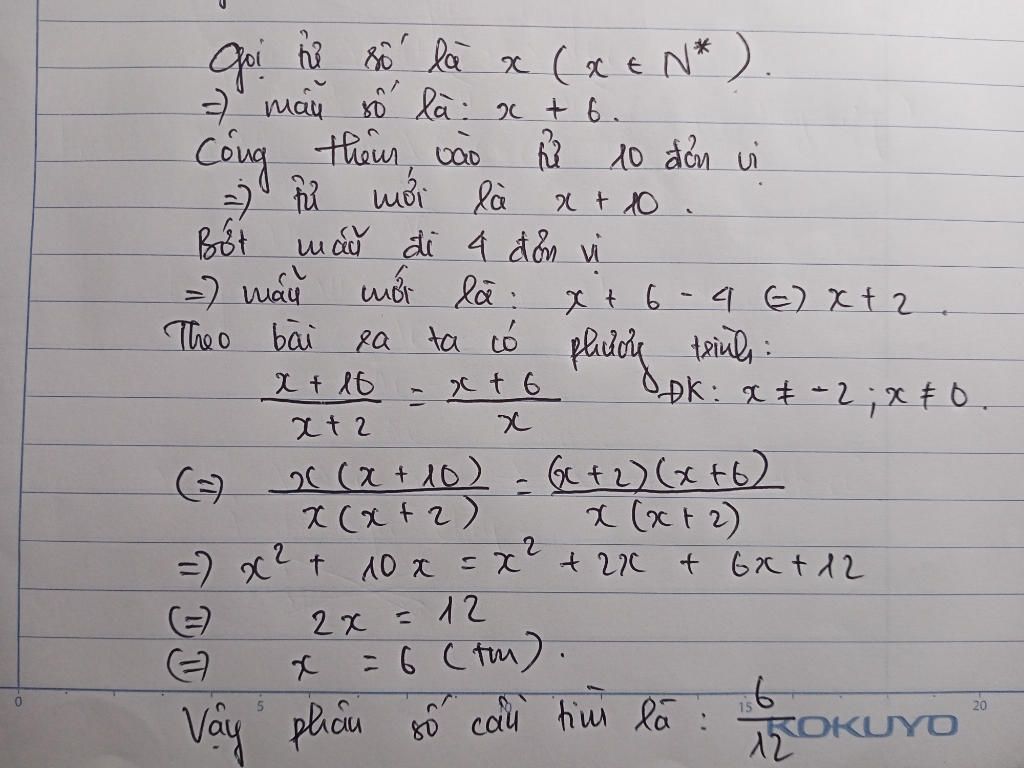 Gọi tử số là x ( x ∈ N* ).
=> mẫu số là: x + 6.
Cộng thêm vào tử 10 đơn vị
=> tử mới là x + 10.
Bớt mẫu đi 4 đơn vị
=> mẫu mới là: x + 6 - 4 (=) x + 2.
Theo bài ra ta có phương trình:
(x + 10)/(x + 2) = (x + 6)/x ĐK: x ≠ -2 ; x ≠ 0.
(=) x(x + 10)/x(x + 2) = (x + 2)(x + 6)/x(x + 2)
=> x² + 10x = x² + 2x + 6x + 12
(=) 2x = 12
(=) x = 6 (tm).
0 5 10 15 20
Vậy phân số cần tìm là: 6/12
KOKUYO